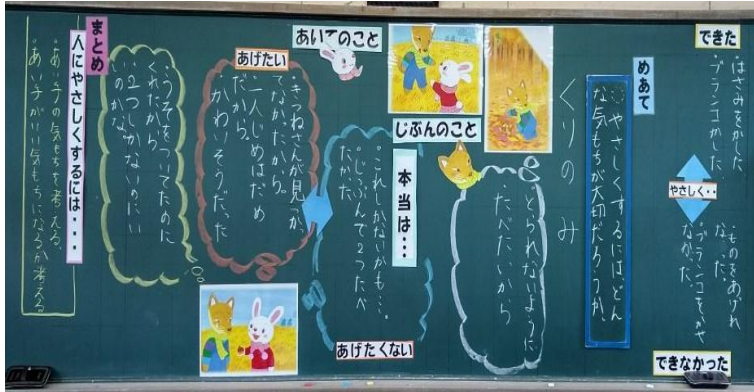 できた
・はさみをかした
・ブランコかした
やさしく・・
・ものをあげれ
なかった。
・ブランコをかせ
なかった
できなかった
めあて
やさしくするには、どん
な気もちが大切だろうか。
くりのみ
じぶんのこと
とられないように
たべたいから
あいてのこと
本当は・・・
・これしかないかも・・・。
・じぶんで2つたべ
たかった
あげたくない
あげたい
・きつねさんが見つか
らなかったから。
・一人じめはだめ
だから。
・かわいそうだった
・うそをついてたのに
くれたから。
・2つしかないのにいい
のかな。
まとめ
人にやさしくするには・・・
・あい手の気もちを考える。
・あい手がいい気もちになるか考える。